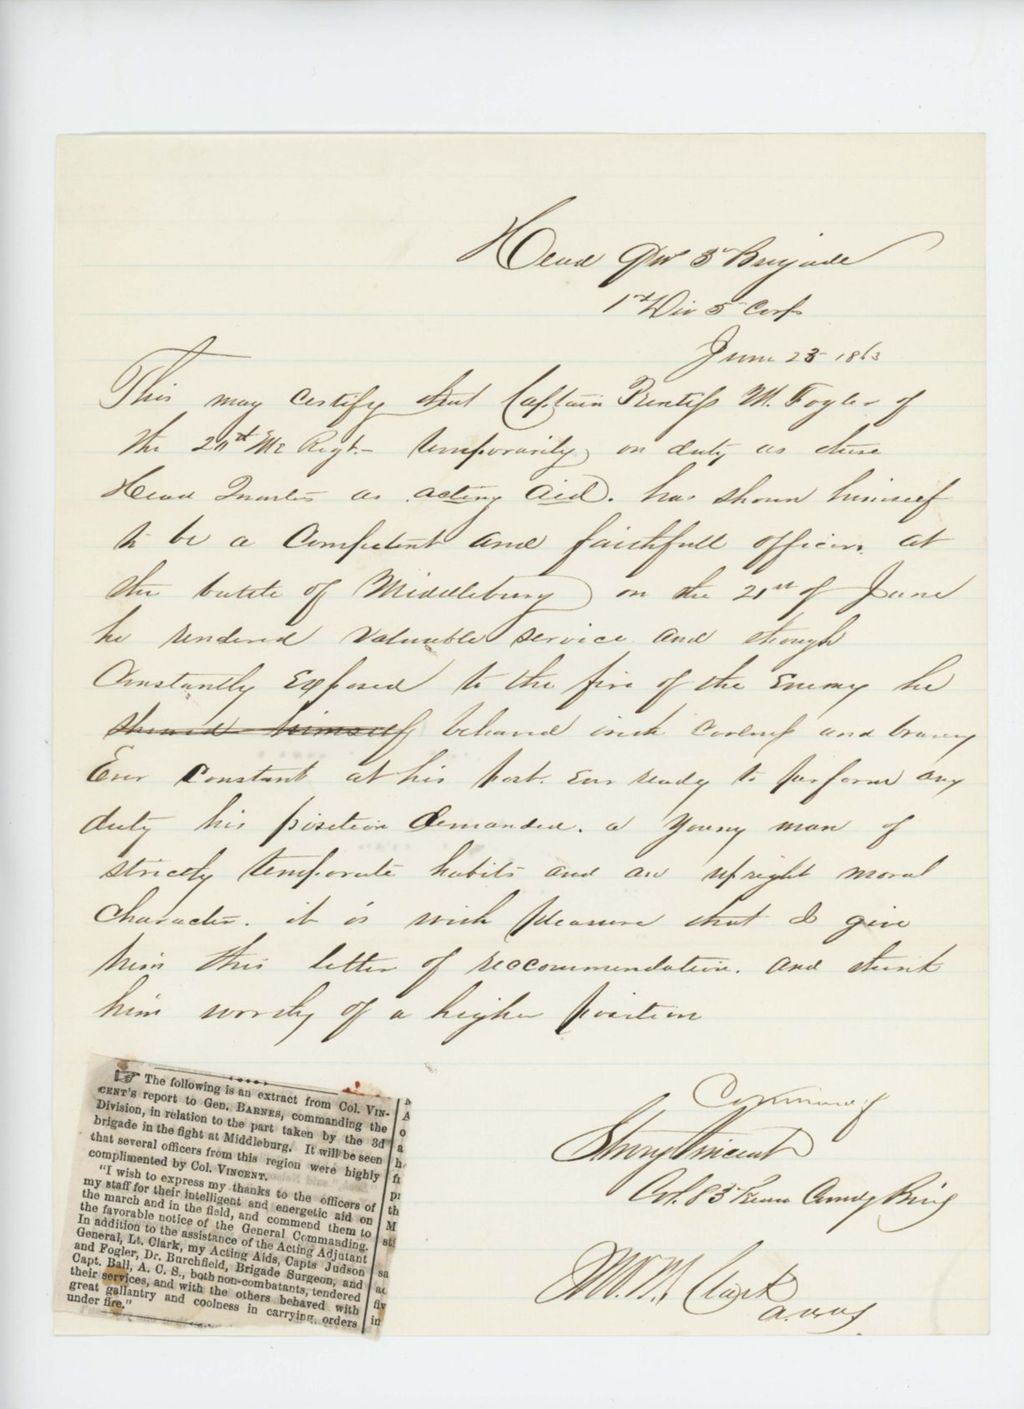 Head Qrs 3d Brigade
1st Div 5 Corps
June 23 1863
This may certify that Captain Prentiss M. Fogler of
the 20th Me Regt - temporarily on duty as these
Head Quarters as acting Aid. has shown himself
to be a Competent and faithfull officer. at
the battle of Middleburg on the 21st of June
he rendered valuable service and though
Constantly Exposed to the fire of the Enemy he
showed himself behaved with coolness and bravery
Ever Constant at his post. Ever ready to perform any
duty his position demanded. a young man of
strictly temperate habits and an upright moral
character. it is with pleasure that I give
him this letter of reccommendation. and think
him worthy of a higher position
Strong Vincent
Col. 83 Penn Comdg Brig
Clark
☞ The following is an extract from Col. VIN-
CENT'S report to Gen. BARNES, commanding the
Division, in relation to the part taken by the 3d
brigade in the fight at Middleburg. It will be seen
that several officers from this region were highly
complimented by Col. VINCENT.
"I wish to express my thanks to the officers of
my staff for their intelligent and energetic aid on
the march and in the field, and commend them to
the favorable notice of the General Commanding.
In addition to the assistance of the Acting Adjutant
General, Lt. Clark, my Acting Aids, Capts Judson
and Fogler, Dr. Burchfield, Brigade Surgeon, and
Capt. Ball, A. C. S., both non-combatants, tendered
their services, and with the others behaved with
great gallantry and coolness in carrying orders
under fire."